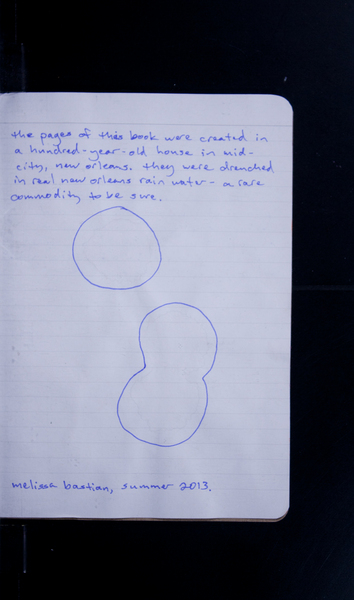 the pages of this book were created in
a hundred-year-old house in mid-
city, new orleans. they were drenched
in real new orleans rain water - a rare
commodity to be sure.
melissa bastian, summer 2013.